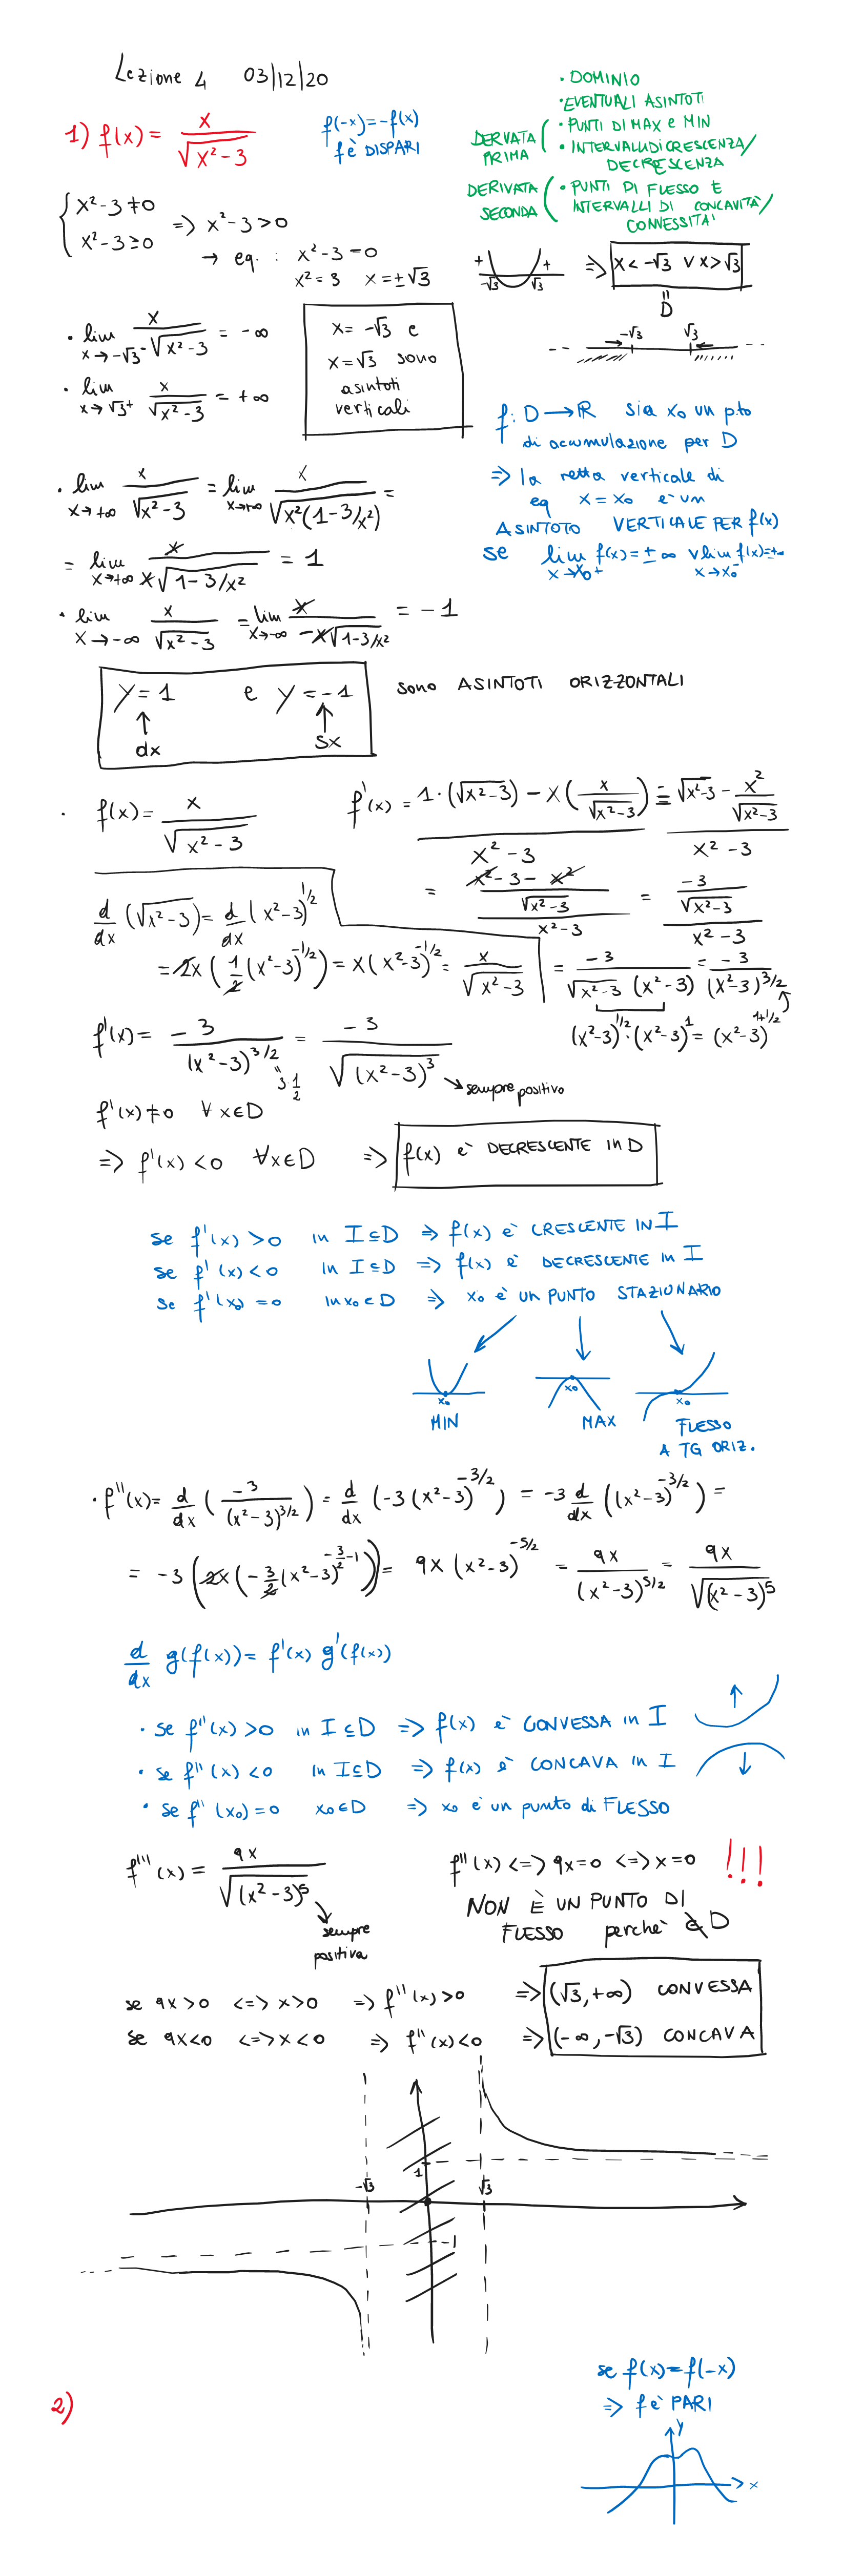 Lezione 4 03/12/20
• DOMINIO
• EVENTUALI ASINTOTI
DERVATA PRIMA ( • PUNTI DI MAX e MIN
• INTERVALLI DI CRESCENZA/
DECRESCENZA
DERIVATA SECONDA ( • PUNTI DI FLESSO E
INTERVALLI DI CONCAVITA'/
CONVESSITA'
1) f(x) = x/√(x²-3)
f(-x)=-f(x)
f è DISPARI
{ x²-3≠0
x²-3≥0 => x²-3>0
→ eq. : x²-3=0
x²=3 x=±√3
+ -√3 √3 +
=> x<-√3 ∨ x>√3
=
D
-√3 √3
• lim x→-√3⁻ x/√(x²-3) = -∞
• lim x→√3⁺ x/√(x²-3) = +∞
x=-√3 e
x=√3 sono
asintoti
verticali
f: D→ℝ sia x₀ un pto
di accumulazione per D
=> la retta verticale di
eq x=x₀ è un
ASINTOTO VERTICALE PER f(x)
se lim x→x₀⁺ f(x)=±∞ ∨ lim x→x₀⁻ f(x)=±∞
• lim x→+∞ x/√(x²-3) = lim x→+∞ x/√(x²(1-3/x²)) =
= lim x→+∞ x/(x√(1-3/x²)) = 1
• lim x→-∞ x/√(x²-3) = lim x→-∞ x/(-x√(1-3/x²)) = -1
y=1 e y=-1 sono ASINTOTI ORIZZONTALI
↑ ↑
dx sx
• f(x) = x/√(x²-3) f'(x) = (1·(√(x²-3)) - x(x/√(x²-3)))/(x²-3) = (√(x²-3) - x²/√(x²-3))/(x²-3)
= ((x²-3-x²)/√(x²-3))/(x²-3) = (-3/√(x²-3))/(x²-3)
d/dx (√(x²-3)) = d/dx (x²-3)^1/2
= 2x (1/2 (x²-3)^-1/2) = x(x²-3)^-1/2 = x/√(x²-3)
= -3/(√(x²-3) (x²-3)) = -3/(x²-3)^3/2
(x²-3)^1/2·(x²-3)^1 = (x²-3)^1+1/2
f'(x) = -3/(x²-3)^3/2 = -3/√((x²-3)³)
3·1/2
→ sempre positivo
f'(x)≠0 ∀x∈D
=> f'(x)<0 ∀x∈D => f(x) è DECRESCENTE in D
se f'(x)>0 in I⊆D => f(x) è CRESCENTE IN I
se f'(x)<0 in I⊆D => f(x) è DECRESCENTE in I
se f'(x₀)=0 in x₀∈D => x₀ è un PUNTO STAZIONARIO
x₀ x₀ x₀
MIN MAX FLESSO
A TG ORIZ.
• f''(x) = d/dx (-3/(x²-3)^3/2) = d/dx (-3(x²-3)^-3/2) = -3 d/dx ((x²-3)^-3/2) =
= -3 (2x(-3/2 (x²-3)^-3/2-1)) = 9x (x²-3)^-5/2 = 9x/(x²-3)^5/2 = 9x/√((x²-3)^5)
d/dx g(f(x)) = f'(x) g'(f(x))
• se f''(x)>0 in I⊆D => f(x) è CONVESSA in I ↑
• se f''(x)<0 in I⊆D => f(x) è CONCAVA in I ↓
• se f''(x₀)=0 x₀∈D => x₀ è un punto di FLESSO
f'''(x) = 9x/√((x²-3)^5)
→ sempre
positiva
f''(x) <=> 9x=0 <=> x=0 !!!
NON È UN PUNTO DI
FLESSO perchè ∉D
se 9x>0 <=> x>0 => f''(x)>0 => (√3,+∞) CONVESSA
se 9x<0 <=> x<0 => f''(x)<0 => (-∞,-√3) CONCAVA
1
-√3 √3
-1
se f(x)=f(-x)
2)
=> f è PARI
y
x